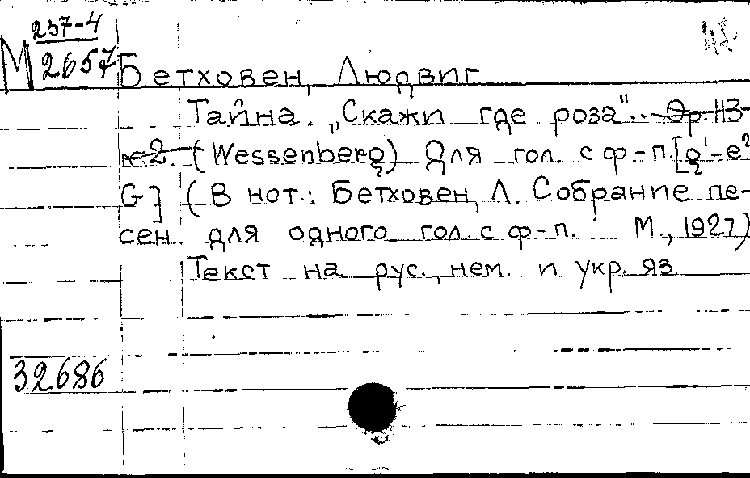 237-4
М 2657
Бетховен, Людвиг
Тайна. „Скажи где роза“. Эр. 113
№2. (Wessenberg) Для гол. с ф-п. [g'-e²
G] (В нот.: Бетховен, Л. Собрание пе-
сен для одного гол. с ф-п. М., 1927)
Текст на рус., нем. и укр. яз
32686